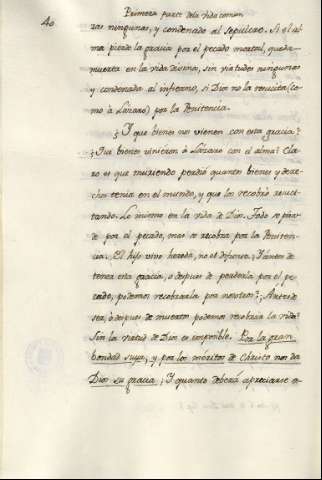 40
Primera parte de la vida comun
zas ningunas, y condenado al sepulcro. Si el al
ma pierde la gracia por el pecado mortal, queda
muerta en la vida divina, sin virtudes ningunas
y condenada al infierno, si Dios no la resucita (co
mo à Lázaro) por la Penitencia.
¿Y que bienes nos vienen con esta gracia?
¿Que bienes vinieron à Lázaro con el alma? Cla
ro es que muriendo perdió quantos bienes y dere
chos tenia en el mundo, y que los recobró resuci
tando. Lo mismo en la vida de Dios. Todo se pier
de por el pecado, mas se recobra por la Peniten
cia. El hijo vivo hereda, no el difunto. ¿Y antes de
tener esta gracia, o despues de perderla por el pe
cado, podemos recobrarla por nosotros? ¿Antes de
ser, ò despues de muertos podemos recobrar la vida?
Sin la virtud de Dios es imposible. Por la gran
bondad suya, y por los méritos de Christo nos da
Dios su gracia; ¿Y quanto deberá apreciarse e